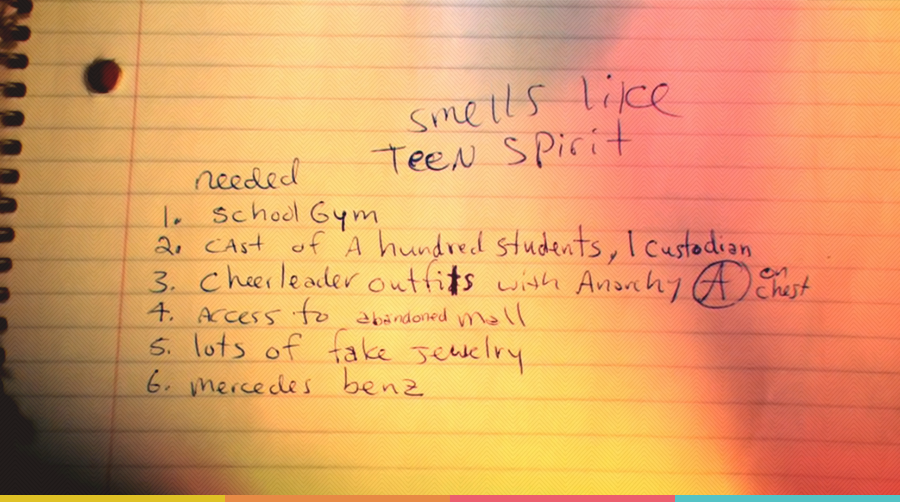 smells like
TEEN SPirit
needed
1. School Gym
2. CAst of A hundred students, 1 custodian
3. Cheerleader outfits with Anarchy A on chest
4. Access to abandoned mall
5. lots of fake Jewelry
6. mercedes benz